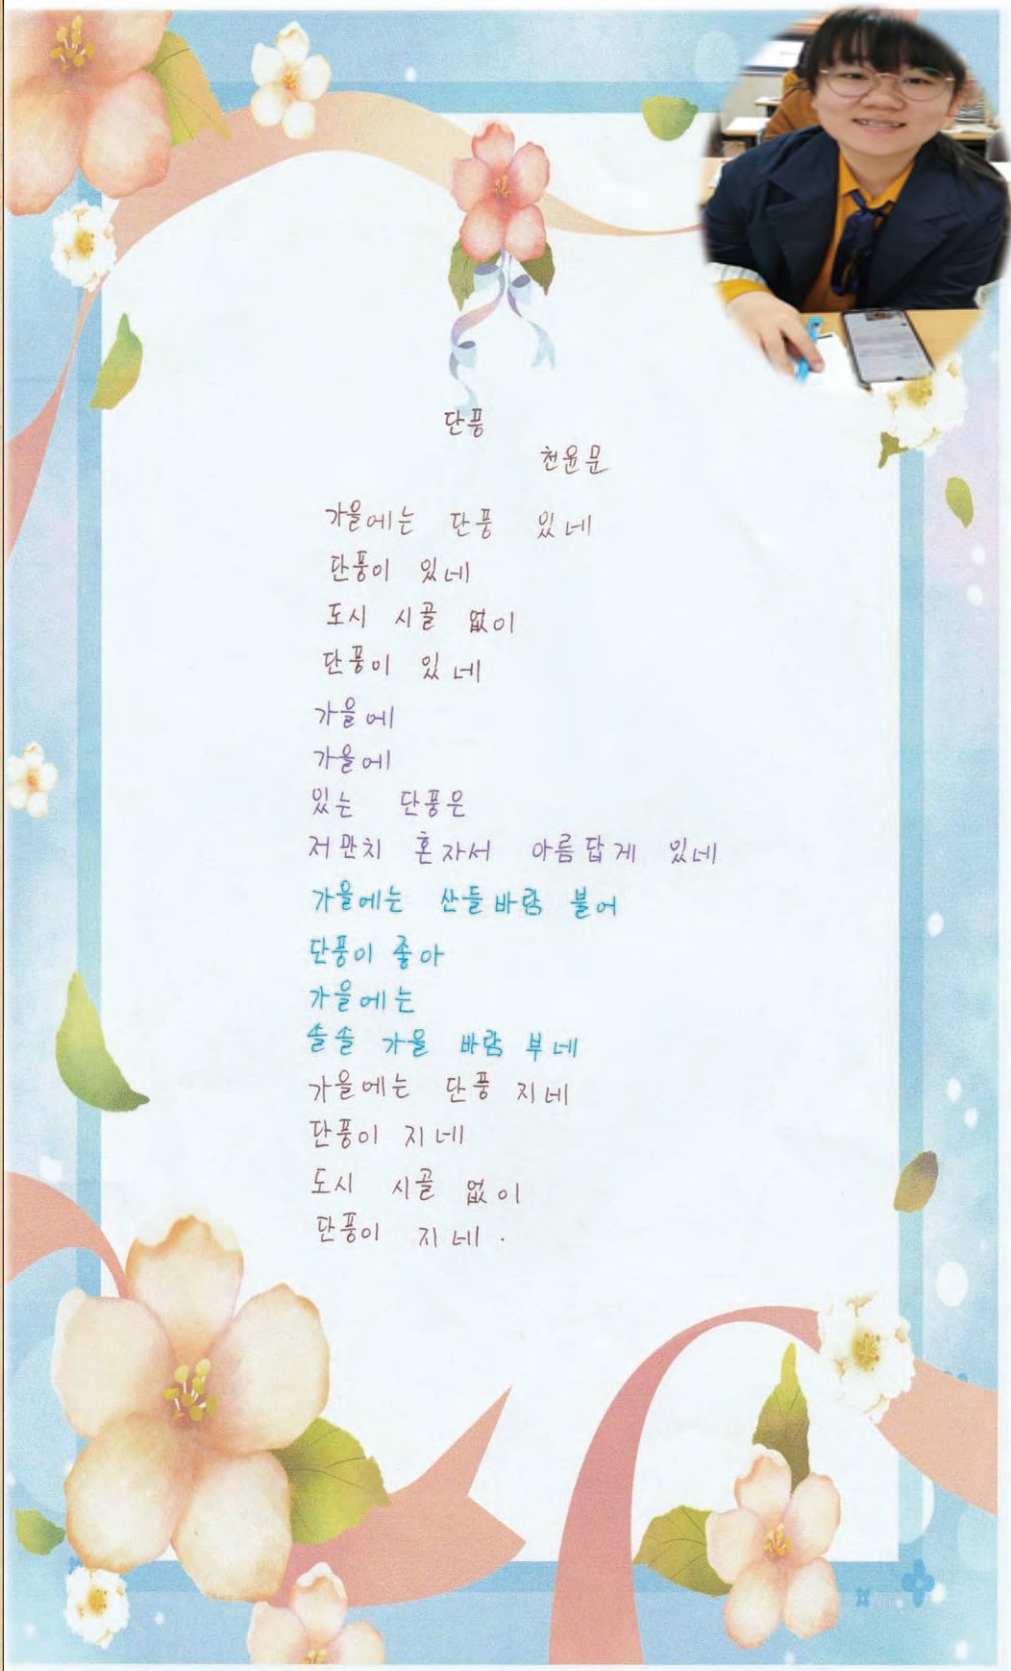 단풍
천윤문
가을에는 단풍 있네
단풍이 있네
도시 시골 없이
단풍이 있네
가을에
가을에
있는 단풍은
저만치 혼자서 아름답게 있네
가을에는 산들바람 불어
단풍이 좋아
가을에는
솔솔 가을 바람 부네
가을에는 단풍 지네
단풍이 지네
도시 시골 없이
단풍이 지네.